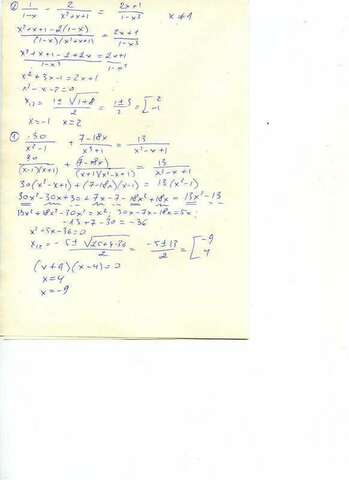 ② 1/(1-x) - 2/(x²+x+1) = (2x+1)/(1-x³) x ≠ 1
(x²+x+1-2(1-x))/((1-x)(x²+x+1)) = (2x+1)/(1-x³)
(x²+x+1-2+2x)/(1-x³) = (2x+1)/(1-x³)
x²+3x-1=2x+1
x²-x-2=0
x₁,₂ = (1±√(1+8))/2 = (1±3)/2 = [2 -1
x=-1 x=2
① 30/(x²-1) + (7-18x)/(x³+1) = 13/(x²-x+1)
30/((x-1)(x+1)) + (7-18x)/((x+1)(x²-x+1)) = 13/(x²-x+1)
30(x²-x+1)+(7-18x)(x-1) = 13(x²-1)
30x²-30x+30+7x-7-18x²+18x = 13x²-13
13x²+18x²-30x²=x²; 30x-7x-18x=5x;
-13+7-30=-36
x²+5x-36=0
x₁,₂ = (-5±√(25+4·36))/2 = (-5±13)/2 = [-9 4
(x+9)(x-4)=0
x=4
x=-9